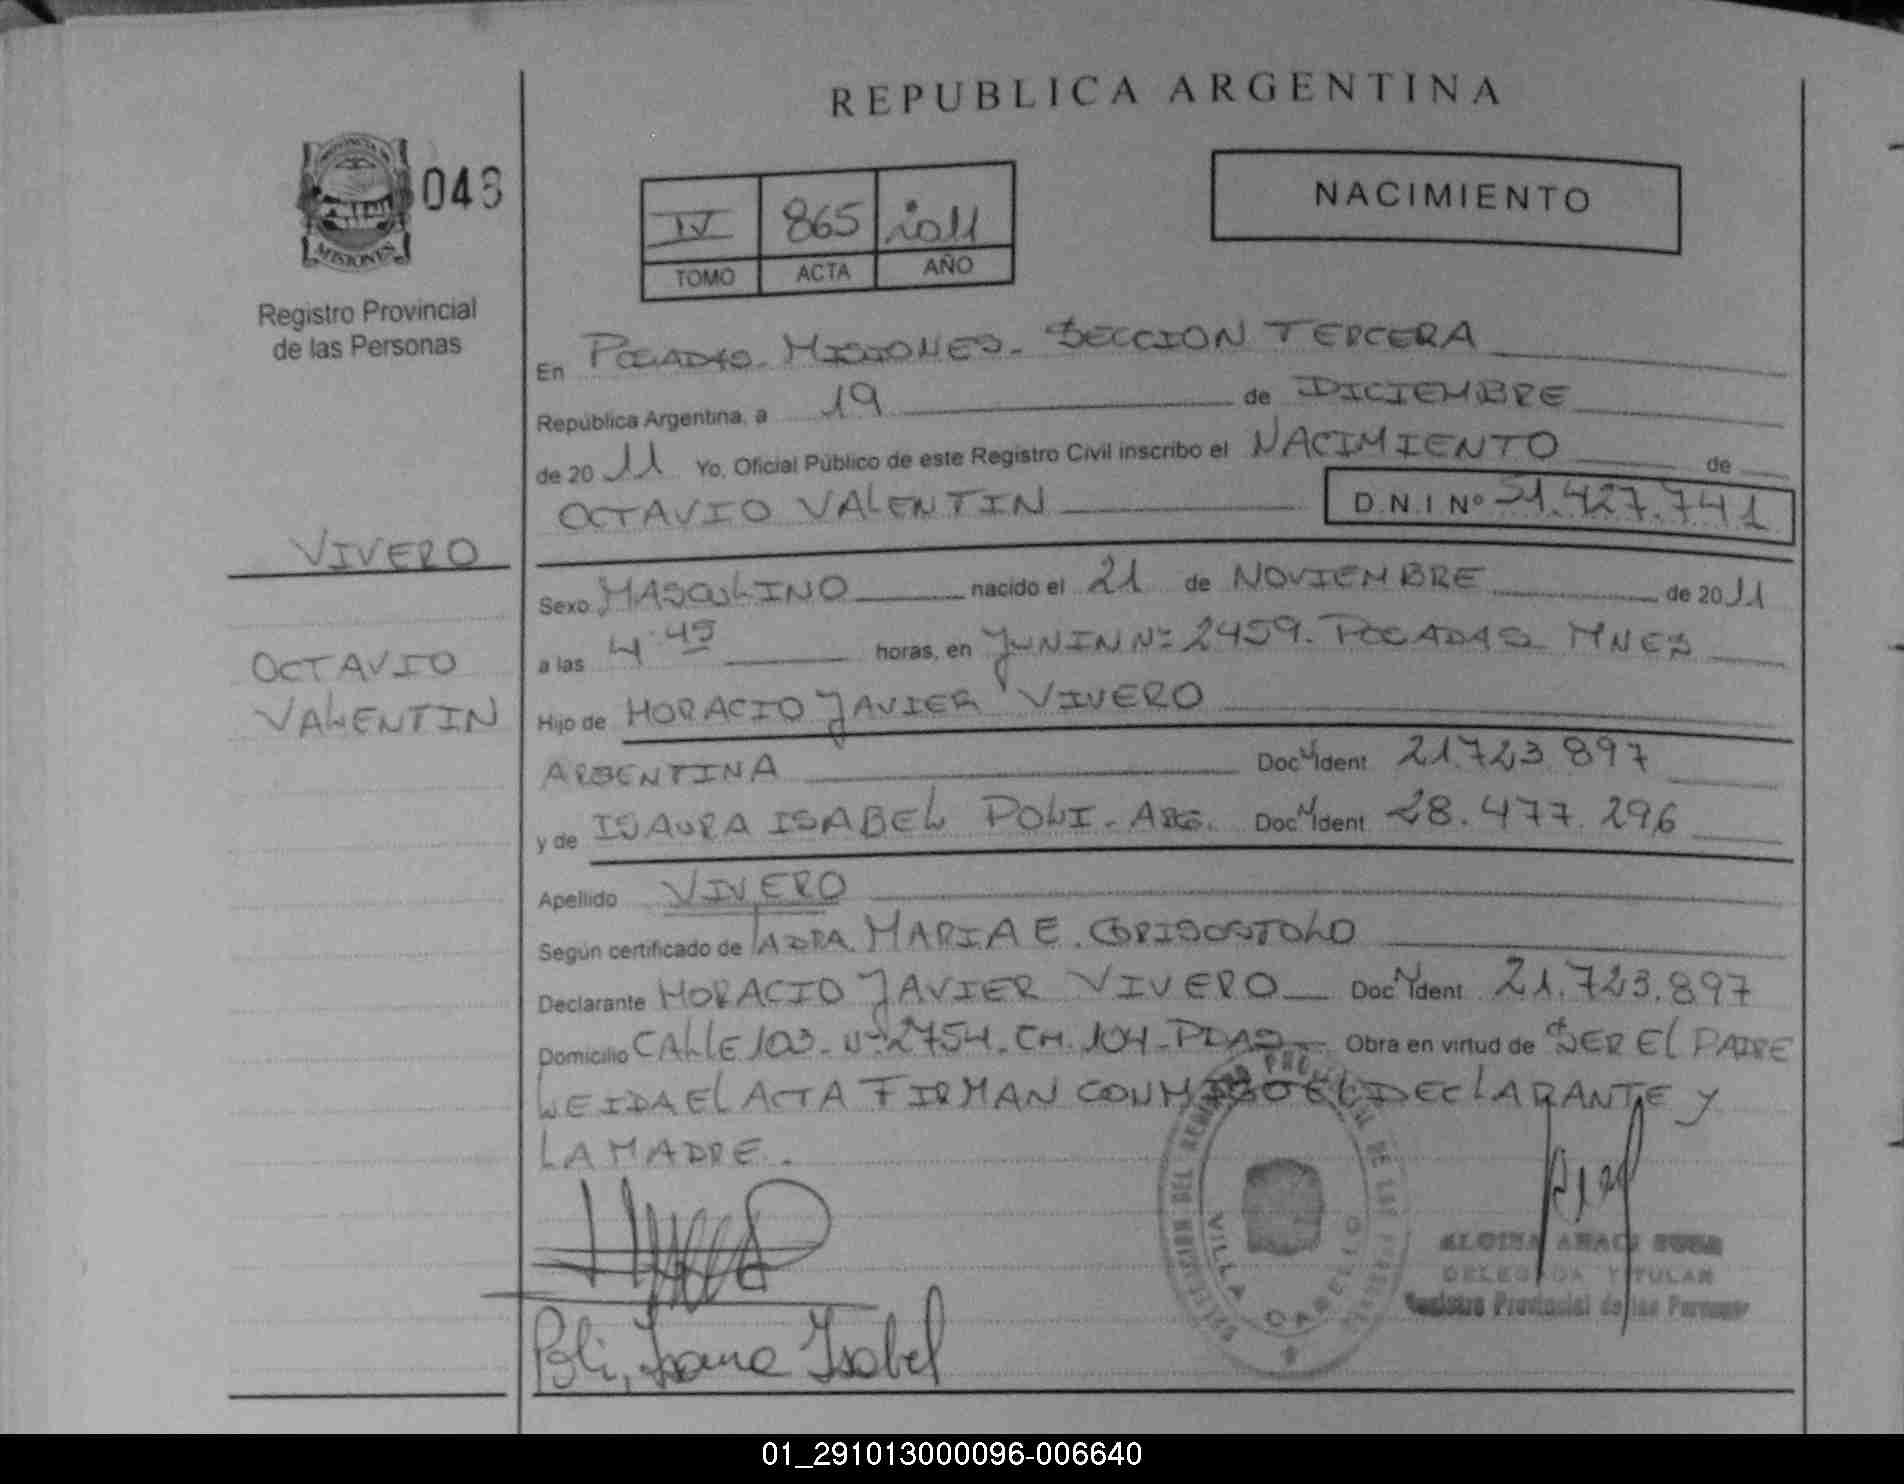 REPUBLICA ARGENTINA
NACIMIENTO
PROVINCIA DE
MISIONES
043
IV 865 2011
TOMO ACTA AÑO
Registro Provincial
de las Personas
En POSADAS - MISIONES - SECCION TERCERA
República Argentina, a 19 de DICIEMBRE
de 20 11 Yo, Oficial Público de este Registro Civil inscribo el NACIMIENTO de
OCTAVIO VALENTIN D.N.I Nº 51.427.741
VIVERO
OCTAVIO
VALENTIN
Sexo MASCULINO nacido el 21 de NOVIEMBRE de 20 11
a las 4.45 horas, en JUNIN Nº 2459. POSADAS MNES
Hijo de HORACIO JAVIER VIVERO
ARGENTINA Doc. Ident 21.723.897
y de ISAURA ISABEL POLI - ARG. Doc. Ident 28.477.296
Apellido VIVERO
Según certificado de MARIA E. GRISOSTOLO
Declarante HORACIO JAVIER VIVERO Doc. Ident 21.723.897
Domicilio CALLE 103 - Nº 2754 - CH. 104 - PDAS - Obra en virtud de SER EL PADRE
LEIDA EL ACTA FIRMAN CONMIGO EL DECLARANTE Y
LA MADRE.
Poli, Isaura Isabel
DELEGACION DEL REGISTRO PROVINCIAL DE LAS PERSONAS
VILLA CABELLO
DELEGADA TITULAR
Registro Provincial de las Personas
01_291013000096-006640